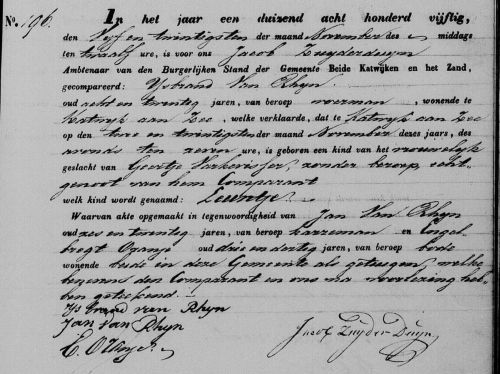 No. 196.
In het jaar een duizend acht honderd vijftig,
den Vyf en twintigsten der maand November des middags
ten twaalf ure, is voor ons Jacob Zuyderduyn
Ambtenaar van den Burgerlijken Stand der Gemeente Beide Katwijken en het Zand,
gecompareerd: Ysbrand Van Rhyn
oud acht en twintig jaren, van beroep , wonende te
Katwyk aan Zee, welke verklaarde, dat te Katwyk aan Zee
op den twee en twintigsten der maand November dezes jaars, des
avonds ten zeven ure, is geboren een kind van het vrouwelyk
geslacht van Geertje Varkevisser, zonder beroep, echt-
genoot van hem Comparant
welk kind wordt genaamd: Leentje
Waarvan akte opgemaakt in tegenwoordigheid van Jan Van Rhyn
oud zes en twintig jaren, van beroep en Engel-
bregt Ouwehand oud drie en dertig jaren, van beroep bode
wonende beide in deze Gemeente als getuigen, welke
benevens den Comparant en ons na voorlezing heb-
ben geteekend.
Ysbrand van Rhyn
Jan van Rhyn
Jacob Zuyder Duyn